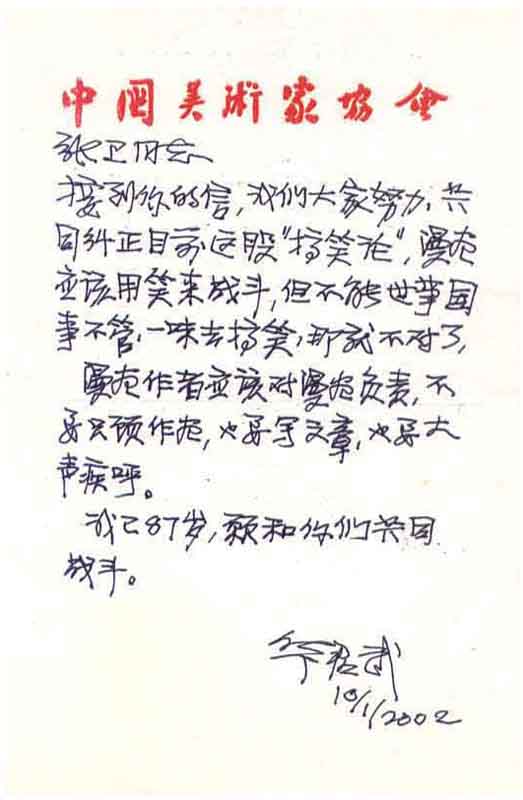 中国美術家协会
张卫同志、
接到你的信，我们大家努力、共
同纠正目前这股“搞笑论”，漫画
应该用笑来战斗，但不能世事国
事不管，一味去搞笑，那就不对了，
漫画作者应该对漫画负责，不
要只顾作画，也要写文章，也要大
声疾呼。
我已87岁，愿和你们共同
战斗。
华君武
10/1/2002